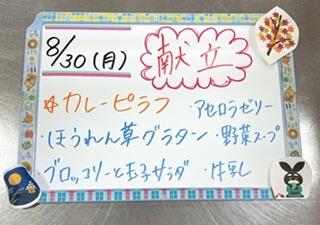 8/30(月) 献立
☆カレーピラフ ・アセロラゼリー
・ほうれん草グラタン ・野菜スープ
・ブロッコリーと玉子サラダ ・牛乳